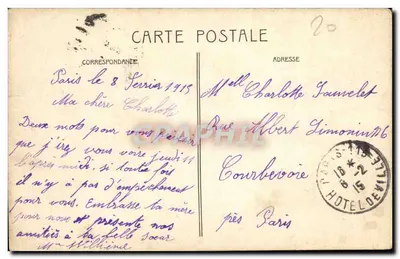 20
CARTE POSTALE
CORRESPONDANCE
ADRESSE
Paris le 8 Fevrier 1915
Ma chère Charlotte
Deux mots pour vous
que j'irez vous voir Jeudi
après-midi si toute fois
il n'y a pas d'empêchement
pour vous. Embrasse ta mère
pour nous et présente nos
amitiés à ta belle soeur
Mme
Melle Charlotte Jauvelet
Rue Albert Simonin
Courbevoie
près Paris
PARIS
HOTEL DE VILLE
16 *
8 - 2
15